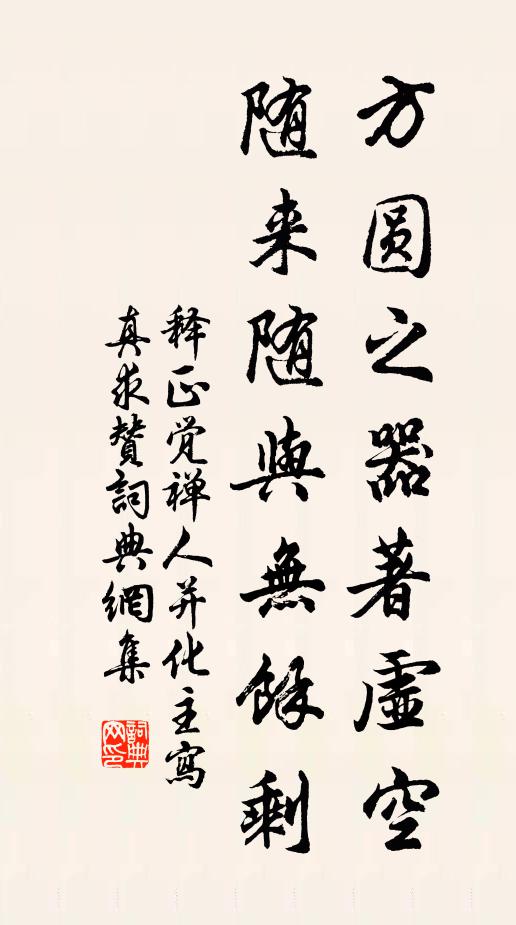 方圆之器著虚空
随来随與無餘剩
释正觉禅人并化主寫
真求赞詞典網集
詞典網印